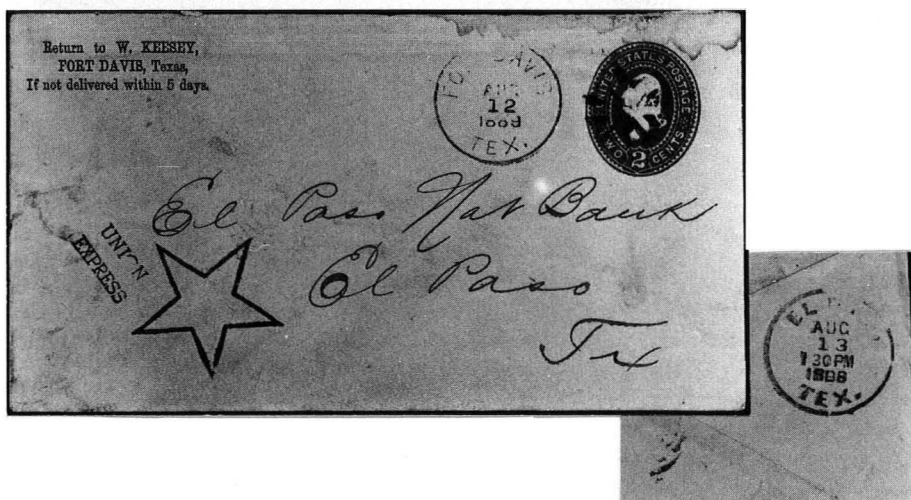 Return to W. KEESEY,
FORT DAVIS, Texas,
If not delivered within 5 days.
DAVIS
AUG
12
TEX.
UNITED STATES POSTAGE
TWO 2 CENTS
El Paso Nat Bank
El Paso
Tx
UNION
EXPRESS
EL
AUG
13
30PM
1888
TEX.